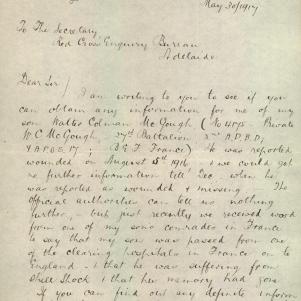 May 30/1917
To The Secretary
Red Cross Enquiry Bureau
Adelaide
Dear Sir/
I am writing to you to see if you
can obtain any information for me of my
son Walter Colman McGough (No 4895 Private
W C McGough 27th Battalion
France) He was reported
wounded on August 5th 1916 & we could get
no further information till Dec when he
was reported as wounded & missing The
official authorities can tell us nothing
further, - but just recently we received word
from one of my sons comrades in France
to say that my son was passed from one
of the clearing hospitals in France on to
England & that he was suffering from
Shell Shock & that his memory had gone
If you can find out any definite inform